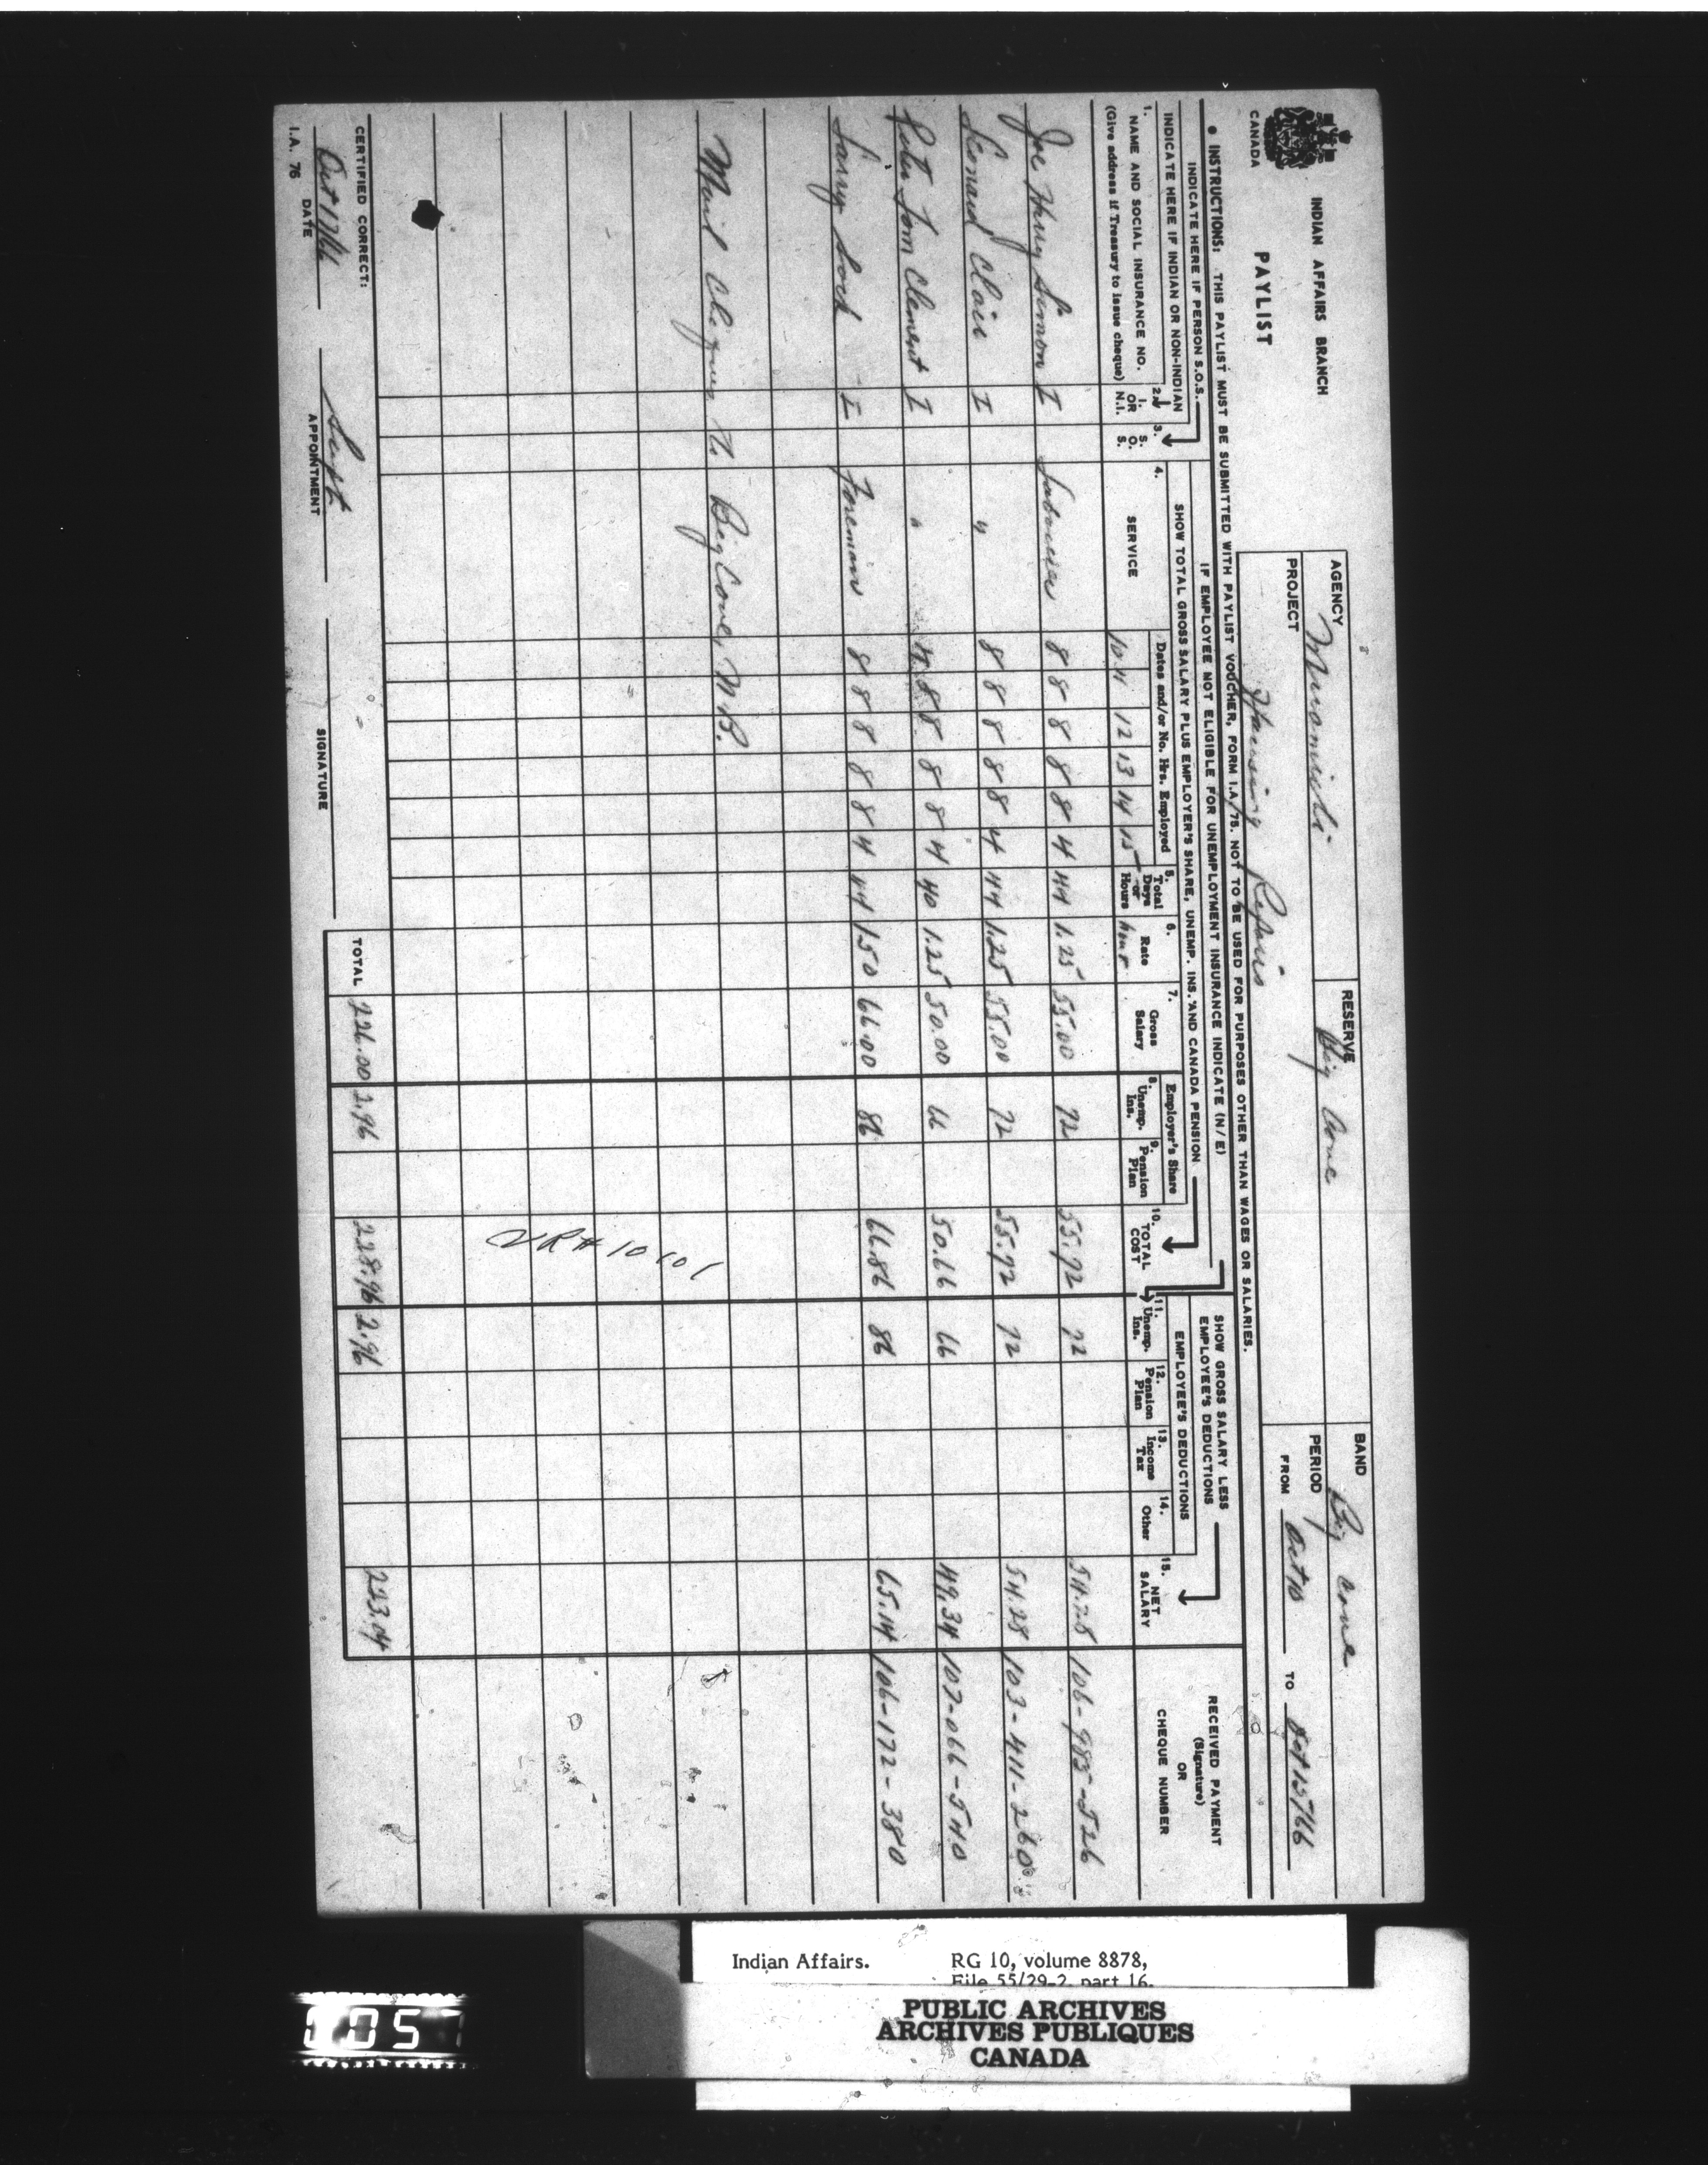 INDIAN AFFAIRS BRANCH
CANADA
PAYLIST
AGENCY Miramichi
RESERVE Big Cove
BAND Big Cove
PROJECT Housing Repairs
PERIOD
FROM Oct 10 TO Oct 15/66
● INSTRUCTIONS: THIS PAYLIST MUST BE SUBMITTED WITH PAYLIST VOUCHER, FORM I.A. 75. NOT TO BE USED FOR PURPOSES OTHER THAN WAGES OR SALARIES.
INDICATE HERE IF PERSON S.O.S.
IF EMPLOYEE NOT ELIGIBLE FOR UNEMPLOYMENT INSURANCE INDICATE (N/E)
INDICATE HERE IF INDIAN OR NON-INDIAN
SHOW TOTAL GROSS SALARY PLUS EMPLOYER'S SHARE, UNEMP. INS. AND CANADA PENSION
SHOW GROSS SALARY LESS EMPLOYEE'S DEDUCTIONS
RECEIVED PAYMENT (Signature) OR CHEQUE NUMBER
Employer's Share
EMPLOYEE'S DEDUCTIONS
1. NAME AND SOCIAL INSURANCE NO. (Give address if Treasury to issue cheque)
2. I. OR N.I.
3. S. O. S.
4. SERVICE
Dates and/or No. Hrs. Employed
10 11 12 13 14 15
5. Total Days or Hours
6. Rate hour
7. Gross Salary
8. Unemp. Ins.
9. Pension Plan
10. TOTAL COST
11. Unemp. Ins.
12. Pension Plan
13. Income Tax
14. Other
15. NET SALARY
Joe Hury Simon I Labourer 8 8 8 8 8 4 44 1.25 55.00 72 55.72 72 54.28 106-985-526
Leonard Clair I " 8 8 8 8 8 4 44 1.25 55.00 72 55.72 72 54.28 103-411-260
Peter Tom Clement I " 4 8 8 8 8 4 40 1.25 50.00 66 50.66 66 49.34 107-066-540
Larry Sock I Foreman 8 8 8 8 8 4 44 150 66.00 86 66.86 86 65.14 106-172-380
Mail Cheques to Big Cove, N.B.
VR# 10101
TOTAL 226.00 2.96 228.96 2.96 223.04
CERTIFIED CORRECT:
Oct 17/66
DATE
Supt
APPOINTMENT
SIGNATURE
I.A. 76
Indian Affairs. RG 10, volume 8878,
File 55/29-2, part 16.
PUBLIC ARCHIVES
ARCHIVES PUBLIQUES
CANADA